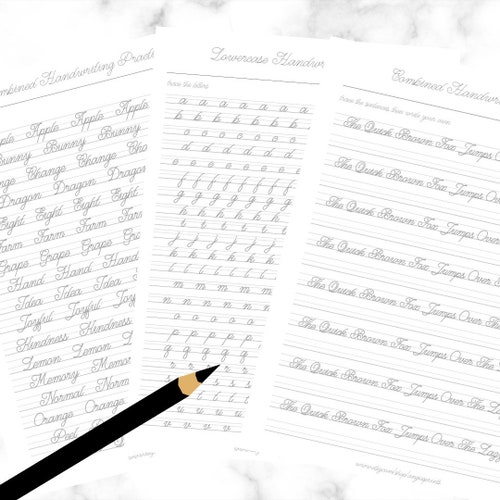 ombined Handwriting Prac
Apple Apple Apple Apple
Bunny Bunny Bunny
Change Change Change
Dragon Dragon Dragon
Eight Eight Eight Eight
Farm Farm Farm Farm
Grape Grape Grape
Hand Hand Hand
Idea Idea Idea
Joyful Joyful
Kindness Kindness
Lemon Lemon
Memory Memory
Normal Norm
Orange Orange
Lowercase Handwr
trace the letters
a a a a a a a
b b b b b b b
c c c c c c c
d d d d d d
e e e e e e
f f f f f f
g g g g g g
h h h h h h
l l l l l l
m m m m m
n n n n n
o o o o o
p p p p p
Combined Handwrit
trace the sentence, then write your own
The Quick Brown Fox Jumps Ov
The Quick Brown Fox Jumps Over
The Quick Brown Fox Jumps Over
The Quick Brown Fox Jumps Over T
The Quick Brown Fox Jumps Over The
The Quick Brown Fox Jumps Over The L
The Quick Brown Fox Jumps Over The Lazy